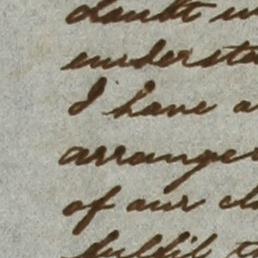 doubt w
understa
I have a
arrange
of our cl
fulfil t